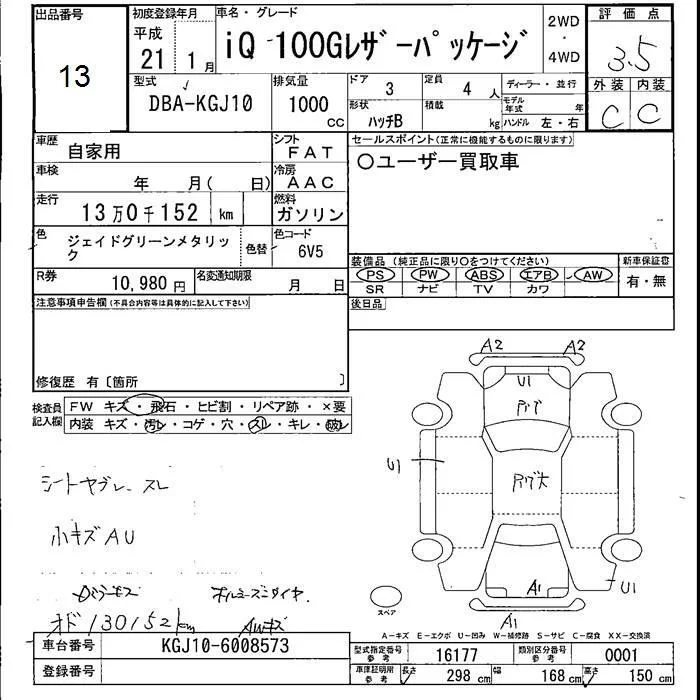 出品番号
13
初度登録年月
平成
21 1月
車名・グレード
iQ 100Gレザーパッケージ
2WD
・
4WD
評価点
3.5
外装 内装
C C
型式
DBA-KGJ10
排気量
1000
CC
ドア
3
定員
4 人
形状
ハッチB
積載
kg
ディーラー・並行
モデル年式 年
ハンドル 左・右
車歴
自家用
シフト
FAT
車検
年 月( 日)
冷房
AAC
走行
13万0千152 km
燃料
ガソリン
色
ジェイドグリーンメタリック
色替
色コード
6V5
R券
10,980 円
名変通知期限
月 日
セールスポイント(正常に機能するものに限ります)
○ユーザー買取車
装備品 (純正品に限り○をつけてください)
PS PW ABS エアB AW
SR ナビ TV カワ
新車保証書
有・無
後日品
注意事項申告欄(不具合内容等は具体的に記入して下さい)
修復歴 有〔箇所 〕
検査員記入欄
FW キズ・飛石・ヒビ割・リペア跡・×要
内装 キズ・汚レ・コゲ・穴・スレ・キレ・破レ
シートヤブレ、スレ
小キズAU
オド130152km
AWキズ
A2 A2
U1
U1
A1
U1
A1
スペア
A-キズ E-エクボ U-凹み W-補修跡 S-サビ C-腐食 XX-交換済
車台番号
KGJ10-6008573
登録番号
型式指定番号
参考
16177
類別区分番号
参考
0001
車庫証明用
参考
長さ
298 cm
幅
168 cm
高さ
150 cm